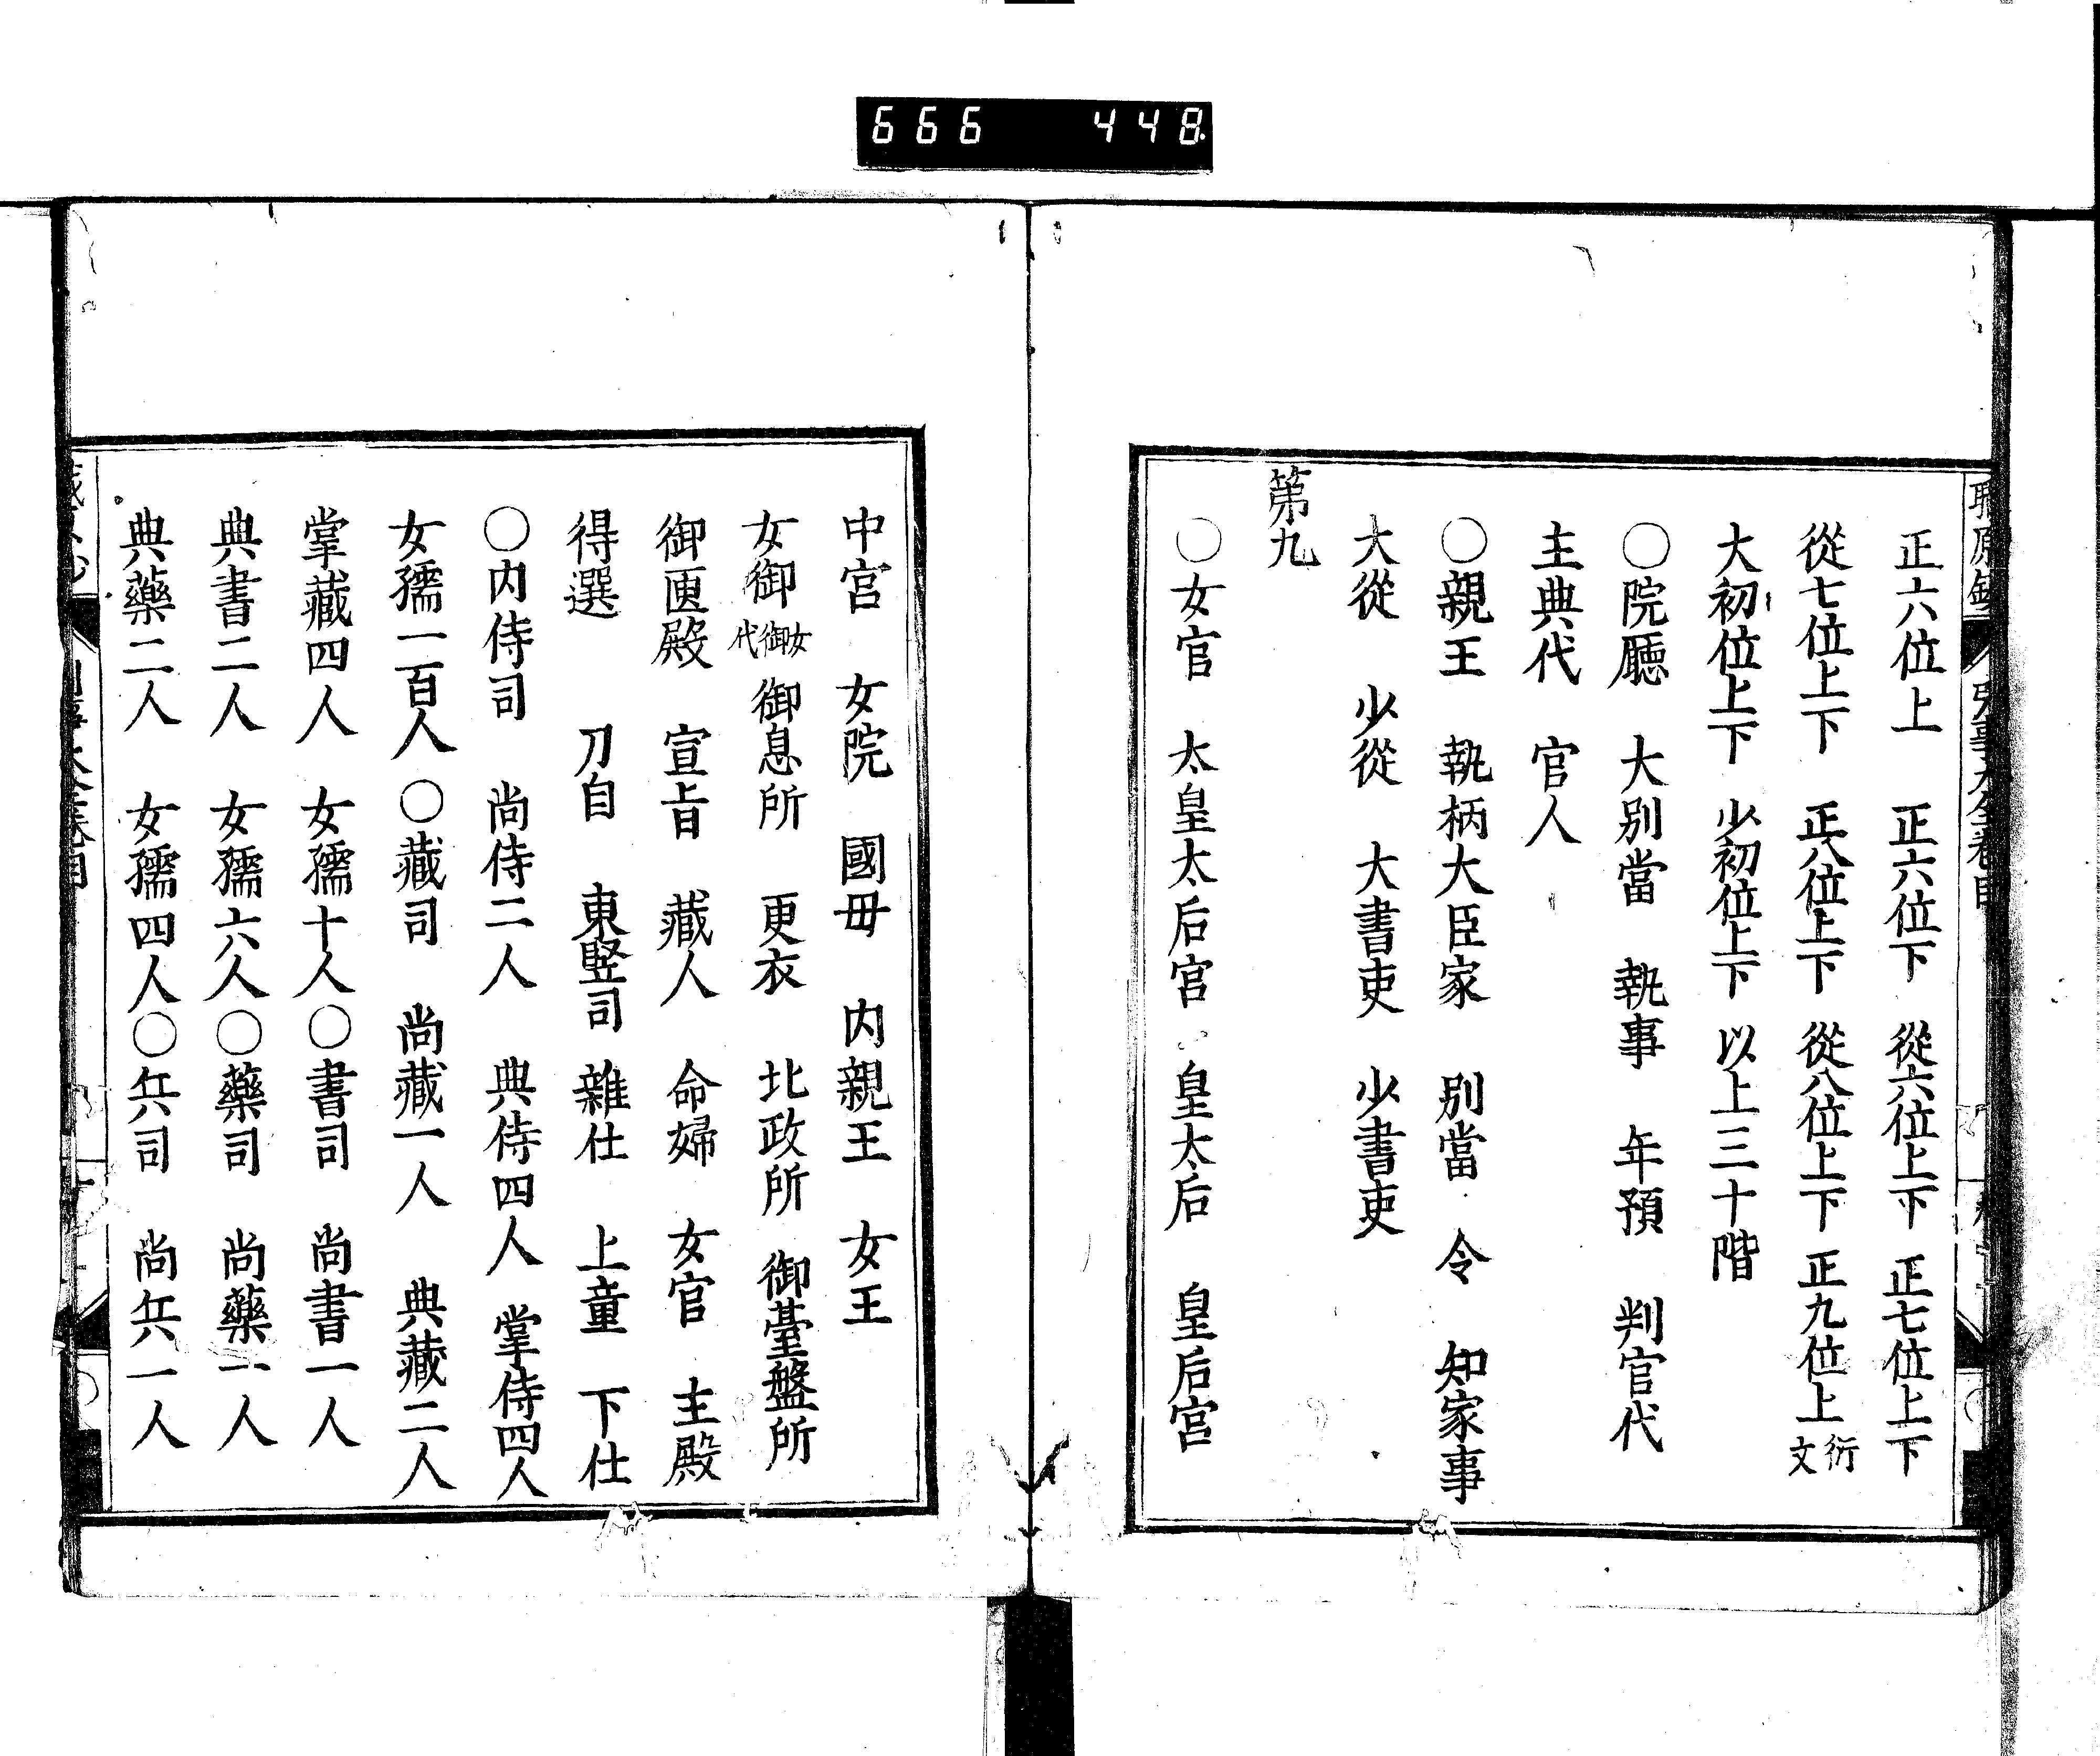 666 448
正六位上 正六位下 從六位上下 正七位上下
從七位上下 正八位上下 從八位上下 正九位上 衍文
大初位上下 少初位上下 以上三十階
○院廳 大別當 執事 年預 判官代
主典代 官人
○親王 執柄大臣家 別當 令 知家事
大從 少從 大書吏 少書吏
第九
○女官 太皇太后宮 皇太后 皇后宮
中宮 女院 國毋 内親王 女王
女御 女御代 御息所 更衣 北政所 御臺盤所
御匣殿 宣㫖 藏人 命婦 女官 主殿
得選 刀自 東豎司 雜仕 上童 下仕
○内侍司 尚侍二人 典侍四人 掌侍四人
女孺一百人 ○藏司 尚藏一人 典藏二人
掌藏四人 女孺十人○書司 尚書一人
典書二人 女孺六人○藥司 尚藥一人
典藥二人 女孺四人○兵司 尚兵一人